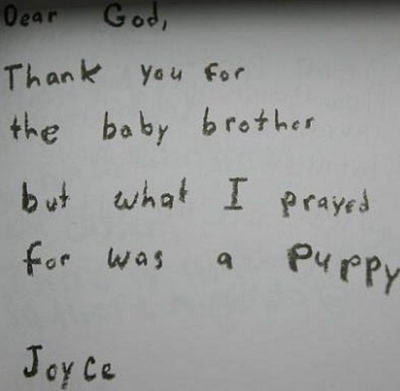 Dear God,
Thank you for
the baby brother
but what I prayed
for was a puppy
Joyce